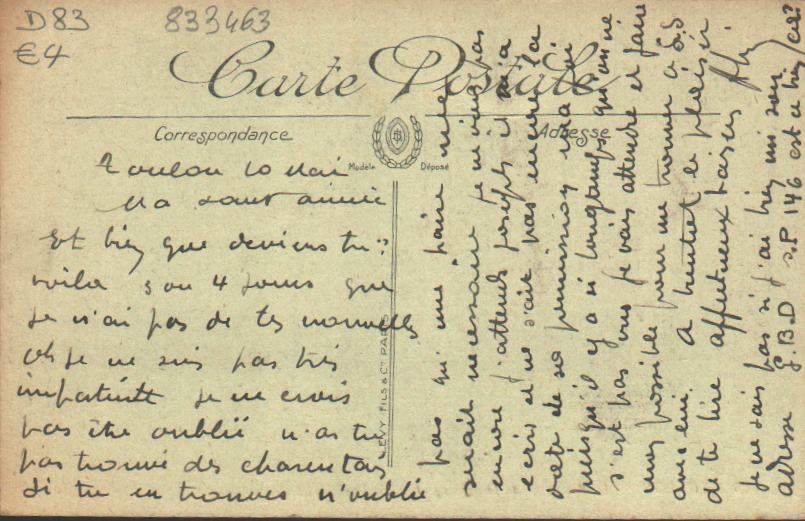 D83
€4
833463
Carte Postale
Correspondance
Adresse
Modèle Déposé
LÉVY FILS & Cie PARIS
Toulon 10 Mai
Ma sœur aimée
Et bien que deviens tu ?
voila 3 ou 4 jours que
je n'ai pas de tes nouvelles
oh je ne suis pas très
impatiente je ne crois
pas être oublié n'as tu
pas trouvé des charentais
Si tu en trouves n'oublie
pas qu'une paire me
serait nécessaire
encore j'attends Joseph il m'a
écrit et ne sait pas encore la
date de sa permission
puisqu'il y a si longtemps qu'on ne
s'est pas vus je vais attendre et faire
mon possible pour me trouver à
avec lui. A bientôt le plaisir
de te lire affectueux baisers
Je ne sais pas si j'ai bien mis son
adresse G.B.D S.P 146 est ce bien ça ?